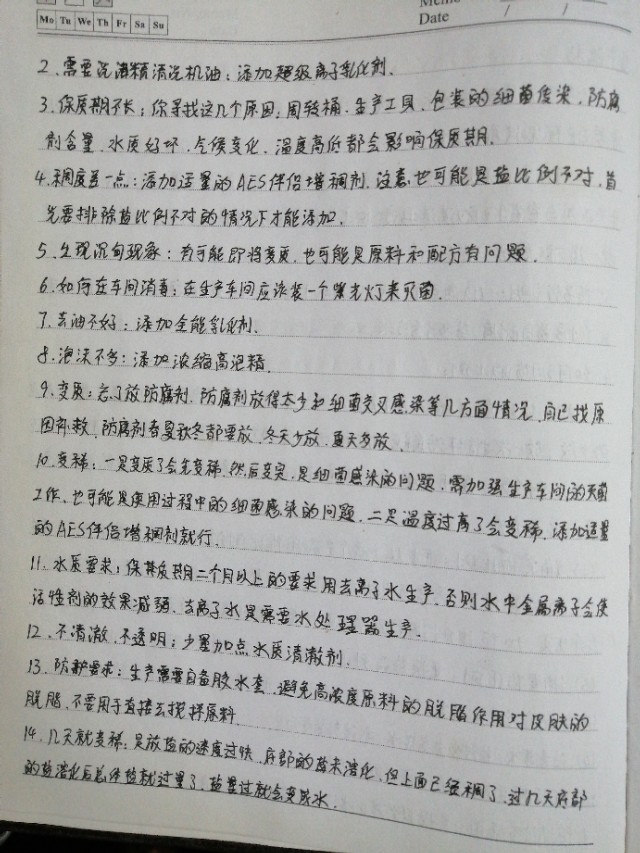 Mo Tu We Th Fr Sa Su
Memo
Date / /
2、需要洗洁精清洗机油：添加超级离子乳化剂.
3、保质期不长：你寻找这几个原因：周转桶、生产工具、包装的细菌传染，防腐
剂含量、水质好坏、气候变化、温度高低都会影响保质期.
4、稠度差一点：添加适量的AES伴侣增稠剂，注意也可能是盐比例不对，首
先要排除盐比例不对的情况下才能添加.
5、出现沉旬现象：有可能即将变质，也可能是原料和配方有问题.
6、如何在车间消毒：在生产车间应该装一个紫光灯来灭菌.
7、去油不好：添加全能乳化剂.
8、泡沫不多：添加浓缩高泡精.
9、变质：忘了放防腐剂、防腐剂放得太少和细菌交叉感染等几方面情况，自己找原
因补救，防腐剂春夏秋冬都要放，冬天少放，夏天多放.
10、变稀：一是变质了会先变稀，然后变臭，是细菌感染的问题，需加强生产车间的灭菌
工作，也可能是使用过程中的细菌感染的问题，二是温度过高了会变稀，添加适量
的AES伴侣增稠剂就行.
11、水质要求：保其质期二个月以上的要求用去离子水生产，否则水中金属离子会使
活性剂的效果减弱，去离子水是需要水处理器生产.
12、不清澈，不透明：少量加点水质清澈剂.
13、防护要求：生产需要自备胶水套，避免高浓度原料的脱脂作用对皮肤的
脱脂，不要用手直接去搅拌原料
14、几天就变稀：是放盐的速度过快，底部的盐未溶化，但上面已经稠了，过几天底部
的盐溶化后总体盐就过量了，盐量过就会变成水.